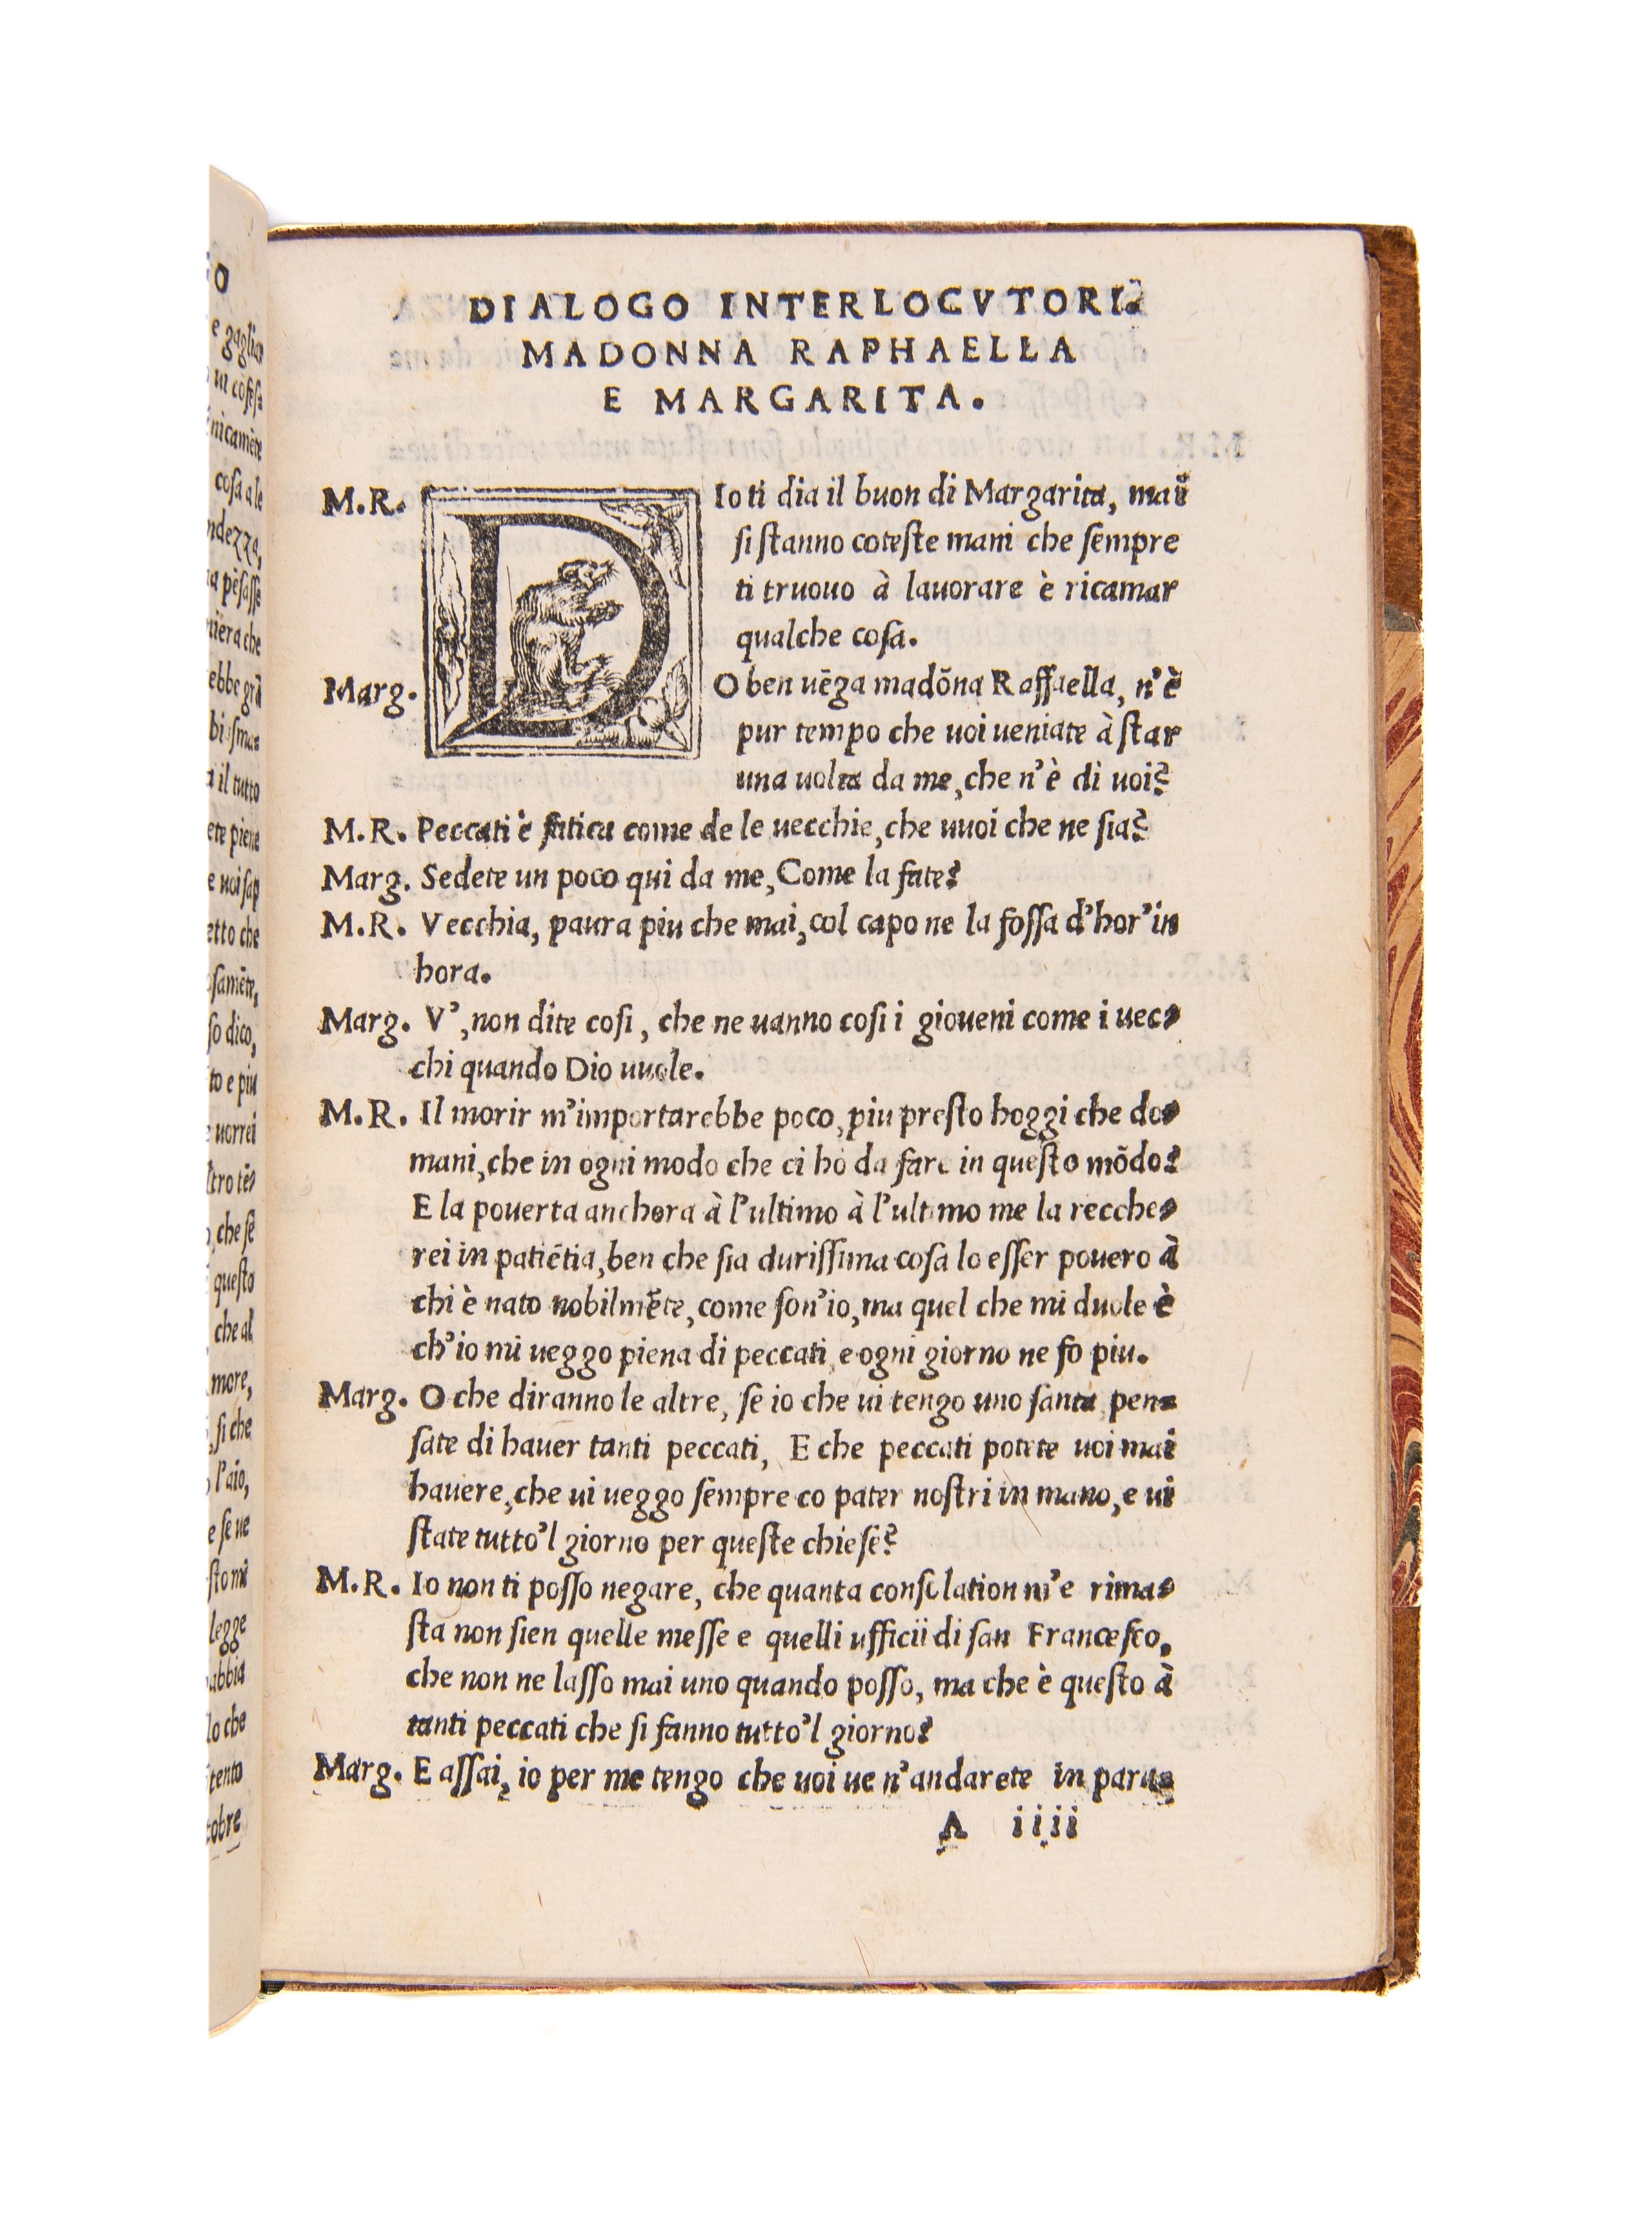 o
e gaglia
ui cosesa
nicamēte
cosa a le
ndezza,
a pēsasse
niera che
ebbe grā
biasma=
a il tutto
ete piene
e uoi sap
etto che
osamēte,
so dico,
to e piu
e uorrei
ltro tē=
, che se
questo
che al
more,
, si che
l'aīo,
e se ne
sto mi
legge
abbia
lo che
tento
tobre
DIALOGO INTERLOCVTORI.
MADONNA RAPHAELLA
E MARGARITA.
M.R. DIo ti dia il buon di Margarita, mai
si stanno coteste mani che sempre
ti truouo à lauorare è ricamar
qualche cosa.
Marg. O ben uēga madōna Raffaella, n'è
pur tempo che uoi ueniate à star
una uolta da me, che n'è di uoi?
M.R. Peccati è fatica come de le uecchie, che uuoi che ne sia?
Marg. Sedete un poco qui da me, Come la fate?
M.R. Vecchia, paura piu che mai, col capo ne la fossa d'hor'in
hora.
Marg. V', non dite cosi, che ne uanno cosi i gioueni come i uec=
chi quando Dio uuole.
M.R. Il morir m'importarebbe poco, piu presto hoggi che do=
mani, che in ogni modo che ci hò da fare in questo mōdo?
E la pouerta anchora à l'ultimo à l'ultimo me la recche=
rei in patiētia, ben che sia durissima cosa lo esser pouero à
chi è nato nobilmēte, come son'io, ma quel che mi duole è
ch'io mi ueggo piena di peccati, e ogni giorno ne fo piu.
Marg. O che diranno le altre, se io che ui tengo uno santa, pen=
sate di hauer tanti peccati, E che peccati potete uoi mai
hauere, che ui ueggo sempre co pater nostri in mano, e ui
state tutto'l giorno per queste chiese?
M.R. Io non ti posso negare, che quanta consolation m'e rima=
sta non sien quelle messe e quelli ufficii di san Francesco,
che non ne lasso mai uno quando posso, ma che è questo à
tanti peccati che si fanno tutto'l giorno?
Marg. E assai, io per me tengo che uoi ue n'andarete in para=
A iiii